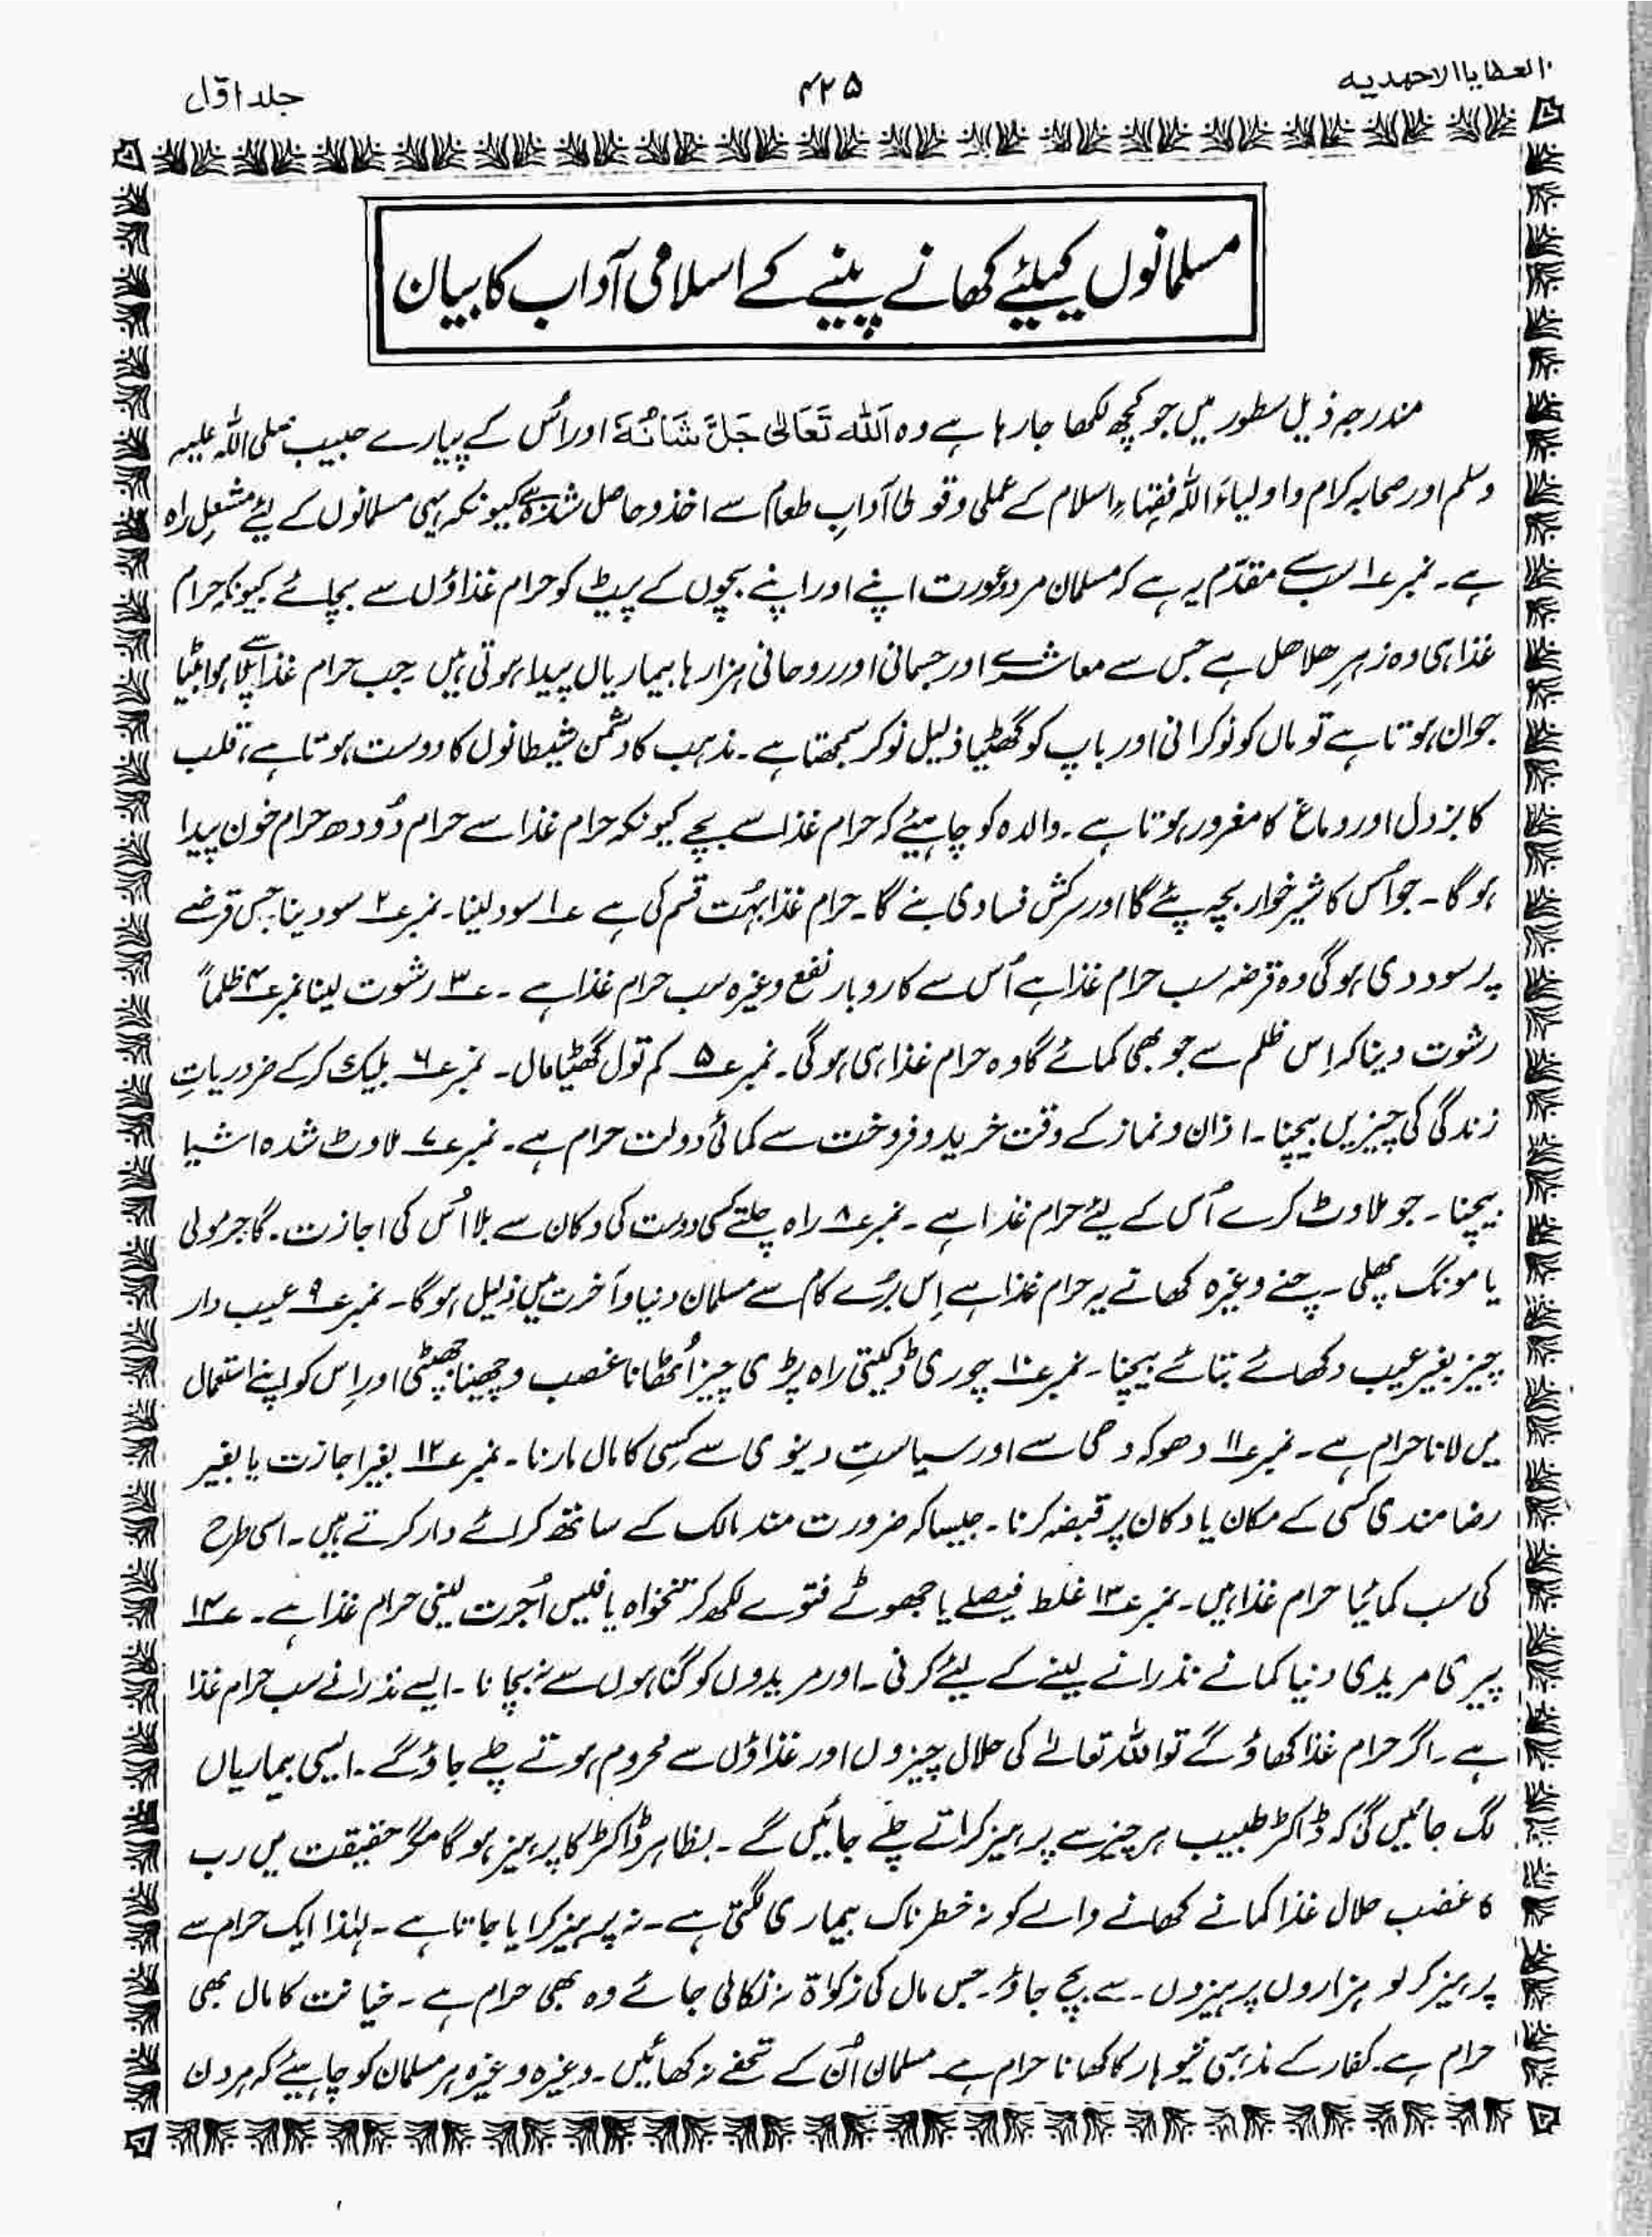 العطایا الاحمدیہ
۴۲۵
جلد اوّل
مسلمانوں کیلئے کھانے پینے کے اسلامی آداب کا بیان
مندرجہ ذیل سطور میں جو کچھ لکھا جا رہا ہے وہ اَللّٰہ تَعَالیٰ جَلَّ شَانُہٗ اور اُس کے پیارے حبیب صلی اللّٰہ علیہ
وسلم اور صحابہ کرام و اولیاءَ اللّٰہ فقہاءِ اسلام کے عملی و قولی آدابِ طعام سے اخذ و حاصل شدہ ہے کیونکہ یہی مسلمانوں کے لئے مشعلِ راہ
ہے۔ نمبر ۱ سب سے مقدّم یہ ہے کہ مسلمان مرد و عورت اپنے اور اپنے بچوں کے پیٹ کو حرام غذاؤں سے بچائے کیونکہ حرام
غذا ہی وہ زہرِ ھلاھل ہے جس سے معاشرے اور جسمانی اور روحانی ہزارہا بیماریاں پیدا ہوتی ہیں جب حرام غذا سے پلا ہوا بیٹا
جوان ہوتا ہے تو ماں کو نوکرانی اور باپ کو گھٹیا ذلیل نوکر سمجھتا ہے۔ مذہب کا دشمن شیطانوں کا دوست ہوتا ہے، قلب
کا بزدل اور دماغ کا مغرور ہوتا ہے۔ والدہ کو چاہیئے کہ حرام غذا سے بچے کیونکہ حرام غذا سے حرام دُودھ حرام خون پیدا
ہوگا۔ جو اُس کا شیر خوار بچہ پئے گا اور سرکش فسادی بنے گا۔ حرام غذا بہُت قسم کی ہے ؏۱ سود لینا۔ نمبر ؏۲ سود دینا جس قرضے
پر سود دی ہوگی وہ قرضہ سب حرام غذا ہے اُس سے کاروبار نفع وغیرہ سب حرام غذا ہے۔ ؏۳ رشوت لینا نمبر ؏۴ ظلماً
رشوت دینا کہ اِس ظلم سے جو بھی کمائے گا وہ حرام غذا ہی ہوگی۔ نمبر ؏۵ کم تول گھٹیا مال۔ نمبر ؏۶ بلیک کرکے ضروریاتِ
زندگی کی چیزیں بیچنا۔ اذان و نماز کے وقت خرید و فروخت سے کمائی دولت حرام ہے۔ نمبر ؏۷ ملاوٹ شدہ اشیا
بیچنا۔ جو ملاوٹ کرے اُس کے لیئے حرام غذا ہے۔ نمبر ؏۸ راہ چلتے کسی دوست کی دکان سے بلا اُس کی اجازت۔ گاجر مولی
یا مونگ پھلی۔ چنے وغیرہ کھاتے یہ حرام غذا ہے اِس بُرے کام سے مسلمان دنیا و آخرت میں ذلیل ہوگا۔ نمبر ؏۹ عیب دار
چیز بغیر عیب دکھائے بتائے بیچنا۔ نمبر ؏۱۰ چوری ڈکیتی راہ پڑی چیز اُٹھانا غصب و چھینا جھپٹی اور اِس کو اپنے استعمال
میں لانا حرام ہے۔ نمبر ؏۱۱ دھوکہ دھی سے اور سیاستِ دینوی سے کسِی کا مال مارنا۔ نمبر ؏۱۲ بغیر اجازت یا بغیر
رضا مندی کسی کے مکان یا دکان پر قبضہ کرنا۔ جیسا کہ ضرورت مند مالک کے ساتھ کرائے دار کرتے ہیں۔ اسی طرح
کی سب کمائیا حرام غذا ہیں۔ نمبر ؏۱۳ غلط فیصلے یا جھوٹے فتوے لکھ کر تنخواہ یا فیس اُجرت لینی حرام غذا ہے۔ ؏۱۴
پیری مریدی دنیا کمانے نذرانے لینے کے لیئے کرنی۔ اور مریدوں کو گناہوں سے نہ بچانا۔ ایسے نذرانے سب حرام غذا
ہے۔ اگر حرام غذا کھاؤ گے تو اللّٰہ تعالےٰ کی حلال چیزوں اور غذاؤں سے محروم ہوتے چلے جاؤ گے۔ ایسی بیماریاں
لگ جائیں گی کہ ڈاکٹر طبیب ہر چیز سے پرہیز کراتے چلے جائیں گے۔ بظاہر ڈاکٹر کا پرہیز ہوگا مگر حقیقت میں رب
کا غضب حلال غذا کمانے کھانے والے کو نہ خطرناک بیماری لگتی ہے۔ نہ پرہیز کرایا جاتا ہے۔ لہٰذا ایک حرام سے
پرہیز کر لو ہزاروں پرہیزوں۔ سے بچ جاؤ۔ جس مال کی زکوٰۃ نہ نکالی جائے وہ بھی حرام ہے۔ خیانت کا مال بھی
حرام ہے۔ کفار کے مذہبی تیوہار کا کھانا حرام ہے۔ مسلمان اُن کے تحفے نہ کھائیں۔ وغیرہ وغیرہ ہر مسلمان کو چاہیئے کہ ہر دن